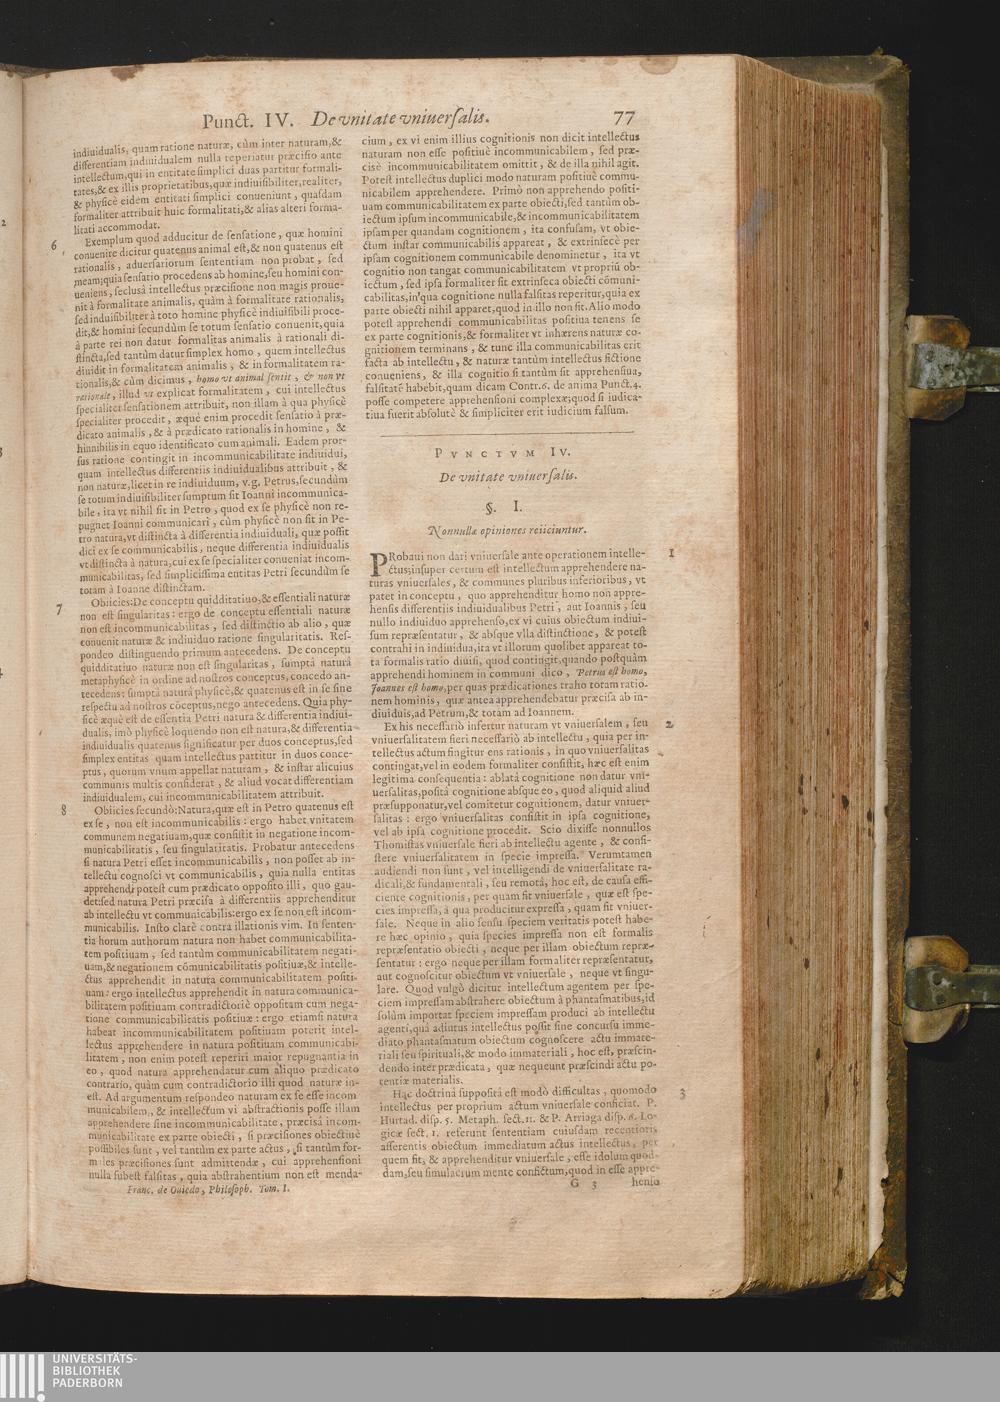 Punct. IV. De vnitate vniuersalis. 77
indiuidualis, quam ratione naturæ, cùm inter naturam,&
differentiam indiuidualem nulla reperiatur præcisio ante
intellectum,qui in entitate simplici duas partitur formali-
tates,& ex illis proprietatibus,quæ indiuisibiliter,realiter,
& physicè eidem entitati simplici conueniunt, quasdam
formaliter attribuit huic formalitati,& alias alteri forma-
litati accommodat.
6 Exemplum quod adducitur de sensatione, quæ homini
conuenire dicitur quatenus animal est,& non quatenus est
rationalis, aduersariorum sententiam non probat, sed
meam;quia sensatio procedens ab homine,seu homini con-
ueniens,seclusâ intellectus præcisione non magis proue-
nit à formalitate animalis, quàm à formalitate rationalis,
sed indiuisibiliter à toto homine physicè indiuisibili proce-
dit,& homini secundùm se totum sensatio conuenit,quia
à parte rei non datur formalitas animalis à rationali di-
stincta,sed tantùm datur simplex homo, quem intellectus
diuidit in formalitatem animalis, & in formalitatem ra-
tionalis,& cùm dicimus, homo vt animal sentit, & non vt
rationale, illud vt explicat formalitatem, cui intellectus
specialiter sensationem attribuit, non illam à qua physicè
specialiter procedit, æquè enim procedit sensatio à præ-
dicato animalis, & à prædicato rationalis in homine, &
hinnibilis in equo identificato cum animali. Eadem pror-
sus ratione contingit in incommunicabilitate indiuidui,
quam intellectus differentiis indiuidualibus attribuit, &
non naturæ,licet in re indiuiduum, v.g. Petrus,secundùm
se totum indiuisibiliter sumptum sit Ioanni incommunica-
bile, ita vt nihil sit in Petro, quod ex se physicè non re-
pugnet Ioanni communicari, cùm physicè non sit in Pe-
tro natura,vt distincta à differentia indiuiduali, quæ possit
dici ex se communicabilis, neque differentia indiuidualis
vt distincta à natura,cui ex se specialiter conueniat incom-
municabilitas, sed simplicissima entitas Petri secundùm se
totam à Ioanne distinctam.
7 Obiicies:De conceptu quidditatiuo,& essentiali naturæ
non est singularitas: ergo de conceptu essentiali naturæ
non est incommunicabilitas, sed distinctio ab alio, quæ
conuenit naturæ & indiuiduo ratione singularitatis. Res-
pondeo distinguendo primum antecedens. De conceptu
quidditatiuo naturæ non est singularitas, sumptâ naturâ
metaphysicè in ordine ad nostros conceptus,concedo an-
tecedens: sumptâ naturâ physicè,& quatenus est in se sine
respectu ad nostros cōceptus,nego antecedens. Quia phy-
sicè æquè est de essentia Petri natura & differentia indiui-
dualis, imò physicè loquendo non est natura,& differentia
indiuidualis quatenus significatur per duos conceptus,sed
simplex entitas quam intellectus partitur in duos conce-
ptus, quorum vnum appellat naturam, & instar alicuius
communis multis considerat, & aliud vocat differentiam
indiuidualem, cui incommunicabilitatem attribuit.
8 Obiicies secundò:Natura,quæ est in Petro quatenus est
ex se, non est incommunicabilis: ergo habet vnitatem
communem negatiuam,quæ consistit in negatione incom-
municabilitatis, seu singularitatis. Probatur antecedens
si natura Petri esset incommunicabilis, non posset ab in-
tellectu cognosci vt communicabilis, quia nulla entitas
apprehendi potest cum prædicato opposito illi, quo gau-
det:sed natura Petri præcisa à differentiis apprehenditur
ab intellectu vt communicabilis:ergo ex se non est incom-
municabilis. Insto clarè contra illationis vim. In senten-
tia horum authorum natura non habet communicabilita-
tem positiuam, sed tantùm communicabilitatem negati-
uam,& negationem cōmunicabilitatis positiuæ,& intelle-
ctus apprehendit in natura communicabilitatem positi-
uam: ergo intellectus apprehendit in natura communica-
bilitatem positiuam contradictoriè oppositam cum nega-
tione communicabilitatis positiuæ: ergo etiamsi natura
habeat incommunicabilitatem positiuam poterit intel-
lectus apprehendere in natura positiuam communicabi-
litatem, non enim potest reperiri maior repugnantia in
eo, quod natura apprehendatur cum aliquo prædicato
contrario, quàm cum contradictorio illi quod naturæ in-
est. Ad argumentum respondeo naturam ex se esse incom
municabilem, & intellectum vi abstractionis posse illam
apprehendere sine incommunicabilitate, præcisâ incom-
municabilitate ex parte obiecti, si præcisiones obiectiuè
possibiles sunt, vel tantùm ex parte actus, si tantùm for-
males præcisiones sunt admittendæ, cui apprehensioni
nulla subest falsitas, quia abstrahentium non est menda-
Franc. de Ouiedo, Philosoph. Tom. I.
cium, ex vi enim illius cognitionis non dicit intellectus
naturam non esse positiuè incommunicabilem, sed præ-
cisè incommunicabilitatem omittit, & de illa nihil agit.
Potest intellectus duplici modo naturam positiuè commu-
nicabilem apprehendere. Primò non apprehendo positi-
uam communicabilitatem ex parte obiecti,sed tantùm ob-
iectum ipsum incommunicabile,& incommunicabilitatem
ipsam per quandam cognitionem, ita confusam, vt obie-
ctum instar communicabilis appareat, & extrinsecè per
ipsam cognitionem communicabile denominetur, ita vt
cognitio non tangat communicabilitatem vt propriū ob-
iectum, sed ipsa formaliter sit extrinseca obiecti cōmuni-
cabilitas,in qua cognitione nulla falsitas reperitur,quia ex
parte obiecti nihil apparet,quod in illo non sit.Alio modo
potest apprehendi communicabilitas positiua tenens se
ex parte cognitionis,& formaliter vt inhærens naturæ co-
gnitionem terminans, & tunc illa communicabilitas erit
facta ab intellectu, & naturæ tantùm intellectus fictione
conueniens, & illa cognitio si tantùm sit apprehensiua,
falsitatē habebit,quam dicam Contr.6. de anima Punct.4.
posse competere apprehensioni complexæ;quod si iudica-
tiua fuerit absolutè & simpliciter erit iudicium falsum.
PVNCTVM IV.
De vnitate vniuersalis.
§. I.
Nonnullæ opiniones reiiciuntur.
PRobaui non dari vniuersale ante operationem intelle- 1
ctus;insuper certum est intellectum apprehendere na-
turas vniuersales, & communes pluribus inferioribus, vt
patet in conceptu, quo apprehenditur homo non appre-
hensis differentiis indiuidualibus Petri, aut Ioannis, seu
nullo indiuiduo apprehenso,ex vi cuius obiectum indiui-
sum repræsentatur, & absque vlla distinctione, & potest
contrahi in indiuidua,ita vt illorum quolibet appareat to-
ta formalis ratio diuisi, quod contingit,quando postquàm
apprehendi hominem in communi dico, Petrus est homo,
Ioannes est homo,per quas prædicationes traho totam ratio-
nem hominis, quæ antea apprehendebatur præcisa ab in-
diuiduis,ad Petrum,& totam ad Ioannem.
Ex his necessariò infertur naturam vt vniuersalem, seu 2
vniuersalitatem fieri necessariò ab intellectu, quia per in-
tellectus actum fingitur ens rationis, in quo vniuersalitas
contingat,vel in eodem formaliter consistit, hæc est enim
legitima consequentia: ablatâ cognitione non datur vni-
uersalitas,positâ cognitione absque eo, quod aliquid aliud
præsupponatur,vel comitetur cognitionem, datur vniuer-
salitas: ergo vniuersalitas consistit in ipsa cognitione,
vel ab ipsa cognitione procedit. Scio dixisse nonnullos
Thomistas vniuersale fieri ab intellectu agente, & consi-
stere vniuersalitatem in specie impressa. Verumtamen
audiendi non sunt, vel intelligendi de vniuersalitate ra-
dicali,& fundamentali, seu remotâ, hoc est, de causa effi-
ciente cognitionis, per quam fit vniuersale, quæ est spe-
cies impressa, à qua producitur expressa, quam fit vniuer-
sale. Neque in alio sensu speciem veritatis potest habe-
re hæc opinio, quia species impressa non est formalis
repræsentatio obiecti, neque per illam obiectum repræ-
sentatur: ergo neque per illam formaliter repræsentatur,
aut cognoscitur obiectum vt vniuersale, neque vt singu-
lare. Quod vulgò dicitur intellectum agentem per spe-
ciem impressam abstrahere obiectum à phantasmatibus,id
solùm importat speciem impressam produci ab intellectu
agenti,quâ adiutus intellectus possit sine concursu imme-
diato phantasmatum obiectum cognoscere actu immate-
riali seu spirituali,& modo immateriali, hoc est, præscin-
dendo inter prædicata, quæ nequeunt præscindi actu po-
tentiæ materialis.
Hac doctrinâ suppositâ est modò difficultas, quomodo 3
intellectus per proprium actum vniuersale conficiat. P.
Hurtad. disp. 5. Metaph. sect.11. & P. Arriaga disp. 6. Lo-
gicæ sect. 1. referunt sententiam cuiusdam recentioris
asserentis obiectum immediatum actus intellectus, per
quem fit, & apprehenditur vniuersale, esse idolum quod-
dam,seu simulacrum mente confictum,quod in esse appre-
G 3 henso
UNIVERSITÄTS-
BIBLIOTHEK
PADERBORN